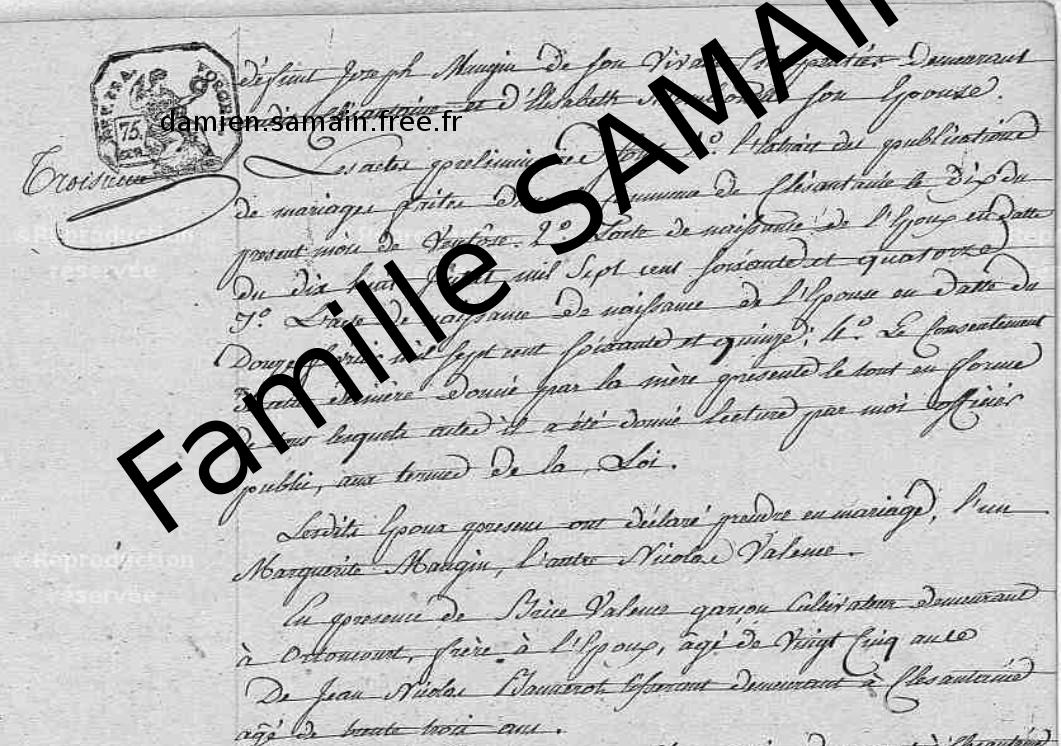 défunt Joseph Maugin de son Vivant demeurant
Clésantaine et d'Elisabeth son Epouse.
Troisieme
Les actes preliminaires sont 1º. l'Extrait des publications
de mariages faites dans la Commune de Clésantaine le Dix du
present mois de Ventose. 2º. L'acte de naissance de l'Epoux en datte
du dix huit mil Sept cent soixante et quatorze
3º. L'acte de naissance de naissance de l'Epouse en datte du
Douze fevrier mil Sept cent Soixante et quinze; 4º. Le Consentement
de cette dernière donné par la mère presente le tout en forme
de tous lesquels actes il a été donné lecture par moi officier
public, aux termes de la Loi.
Lesdits Epoux presens ont déclaré prendre en mariage, l'un
Marguerite Maugin, l'autre Nicolas Valence.
En presence de Brice Valence garçon Cultivateur demeurant
à Ortoncourt, frère à l'Epoux, âgé de Vingt Cinq ans
De Jean Nicolas demeurant à Clesantaine
agé de trente trois ans.
damien.samain.free.fr
Famille SAMAIN
©Reproduction
réservée
©Reproduction
réservée